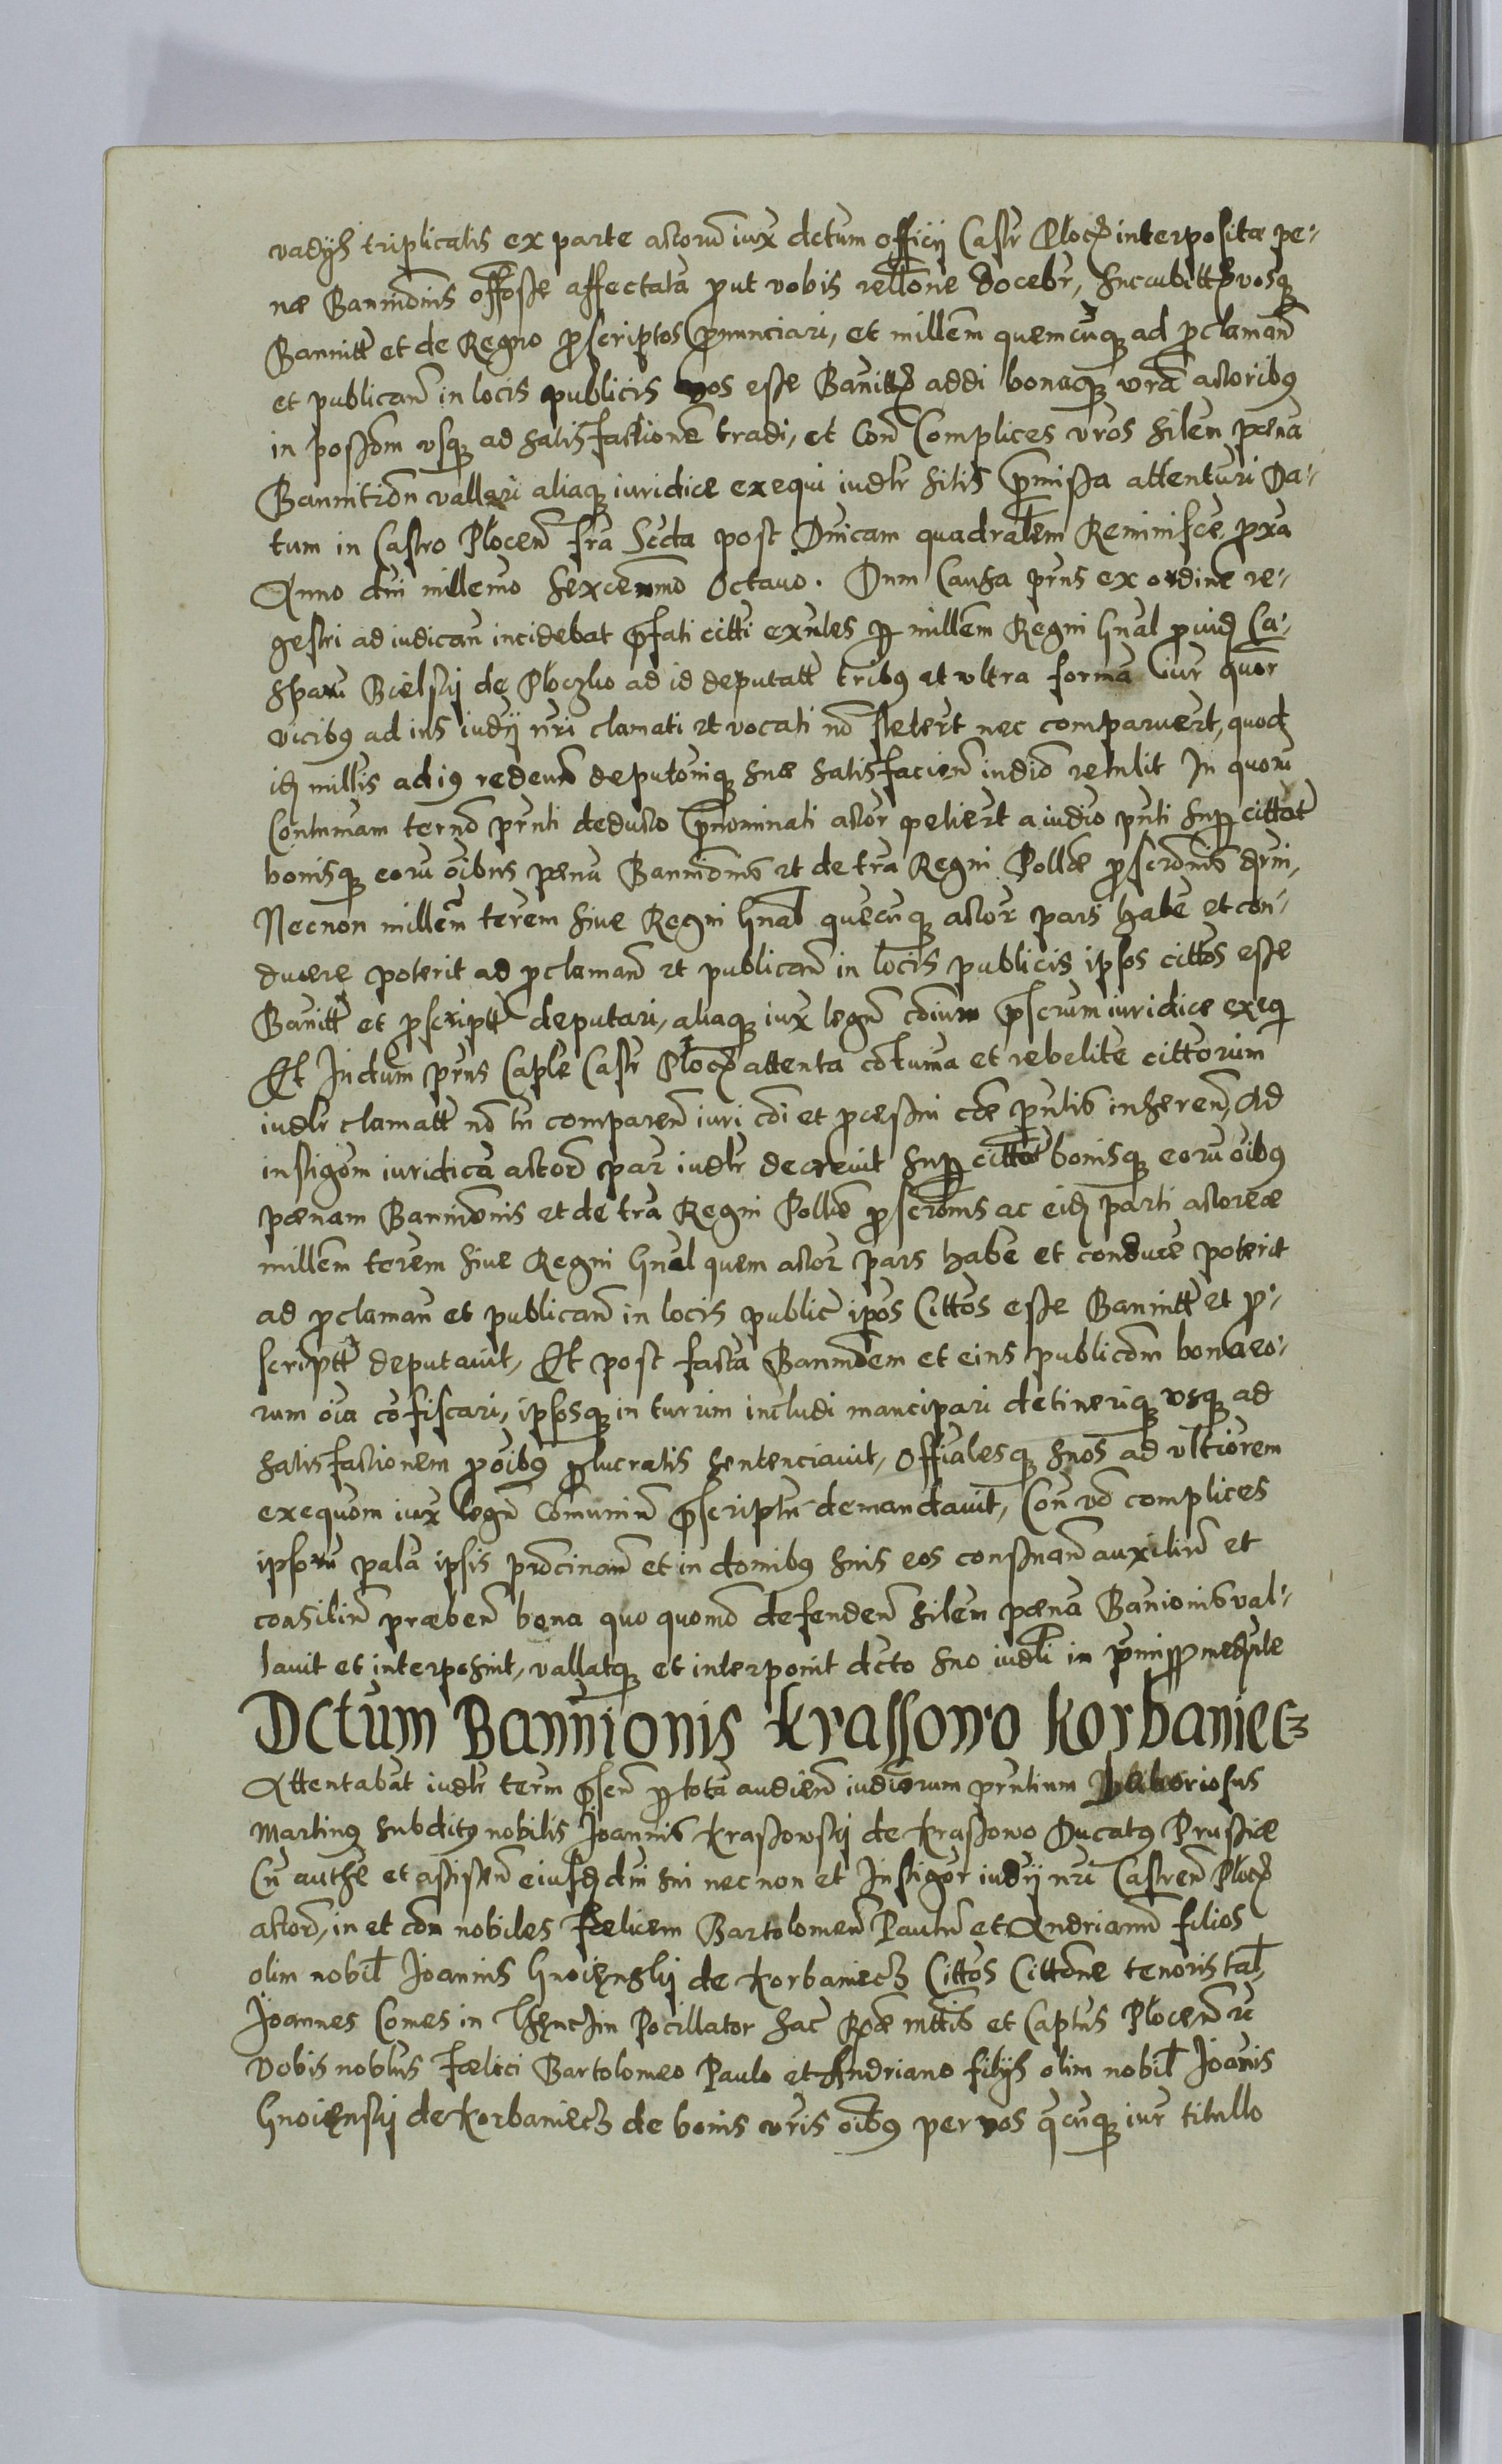 vadys triplicatis ex parte actorū iux dctum officij Castr Płoc interpositæ pe-
næ Bannonis offose affectata prout vobis rellone docebr, succubittr vosq
Bannitt et de Regno proscriptos pronunciari, et millem quemcunq ad proclaman
et publican in locis publicis vos esse Banitt addi bonaq vra actoribq
in possom vsq ad satisfactione tradi, et Con Complices vros silem pæna
Bannition vallari aliaq iuridice exequi iudlr sitis præmissa attenturi Da-
tum in Castro Płocen fra Scda post Dnicam quadralem Reminisce proxa
Anno dni millemo sexcenmo Octauo. Dum Causa prns ex ordine re-
gestri ad iudican incidebat præfati citti exules per millem Regni Gnal prouid Ca-
sparu Bielsky de Płoczko ad id deputatt tribq et vltra forma iur quor
vicibq ad ins iudij nri clamati et vocati no stetert nec comparuert, quod
id millis ad iq redeun deputoniq suæ satisfacien iudio retulit In quoru
Contumam termo prnti deducto prænominati actor petiert a iudio pnti sup cittot
bonisq eoru oibus pæna Bannonis et de tra Regni Pollæ proscronis dcrni,
Necnon millem terem siue Regni Gnal quecunq actor pars habe et con-
ducere poterit ad proclaman et publican in locis publicis ipsos cittos esse
Banitt et proscriptt deputari, aliaq iux legu coium præscrum iuridice exeq
Et Iudium prns Caple Castr Płoc attenta cotuma et rebelite cittorum
iudlr clamatt no tn comparen iuri coi et processui coe pntis inheren, Ad
instigom iuridica actor par iudlr decreuit sup cittot bonisq eoru oibq
pænam Bannonis et de tra Regni Pollæ proscronis ac eid parti actoreæ
millem terem siue Regni Gnal quem actor pars habe et conduce poterit
ad proclaman et publican in locis public ipos Cittos esse Bannitt et pro-
scriptt deputauit, Et post facta Bannoem et eius publicom bona eo-
rum oia cofiscari, ipsosq in turrim includi mancipari detineriq vsq ad
satisfactionem pro oibq perlucratis sentenciauit, Offialesq suos ad vltiorem
exequom iux legu Comuniu præscriptu demandauit, Con vo complices
ipsoru pala ipsis procinan et in domibq suis eos consuan auxiliu et
consiliu præben bona quo quomo defenden silem pæna Banionis val-
lauit et interposuit, vallatq et interponit dcto suo iudli in pmiss mediate
Dctum Bannionis Krassowo Korbaniec
Attentabat iudlr term præsen per tota audien iudiorum prntium Laboriosus
Martinq subditq nobilis Joannis Krassowsky de Krassowo Ducatq Prussiæ
Cu authe et assisten eiusd dni sui nec non et Instigor iudij nri Castren Płoc
actor, in et con nobiles Fœlicem Bartolomeu Paulu et Andrianu filios
olim nobil Joannis Gnoięnsky de Korbaniecz Cittos Cittone tenoris tal,
Joannes Comes in Thęnczin Pocillator Sac Rgæ mttis et Captus Płocen vr
Vobis noblus Fœlici Bartolomeo Paulo et Andriano filijs olim nobil Joanis
Gnoięnsky de Korbaniecz de bonis vris oibq per vos qcunq iur titullo